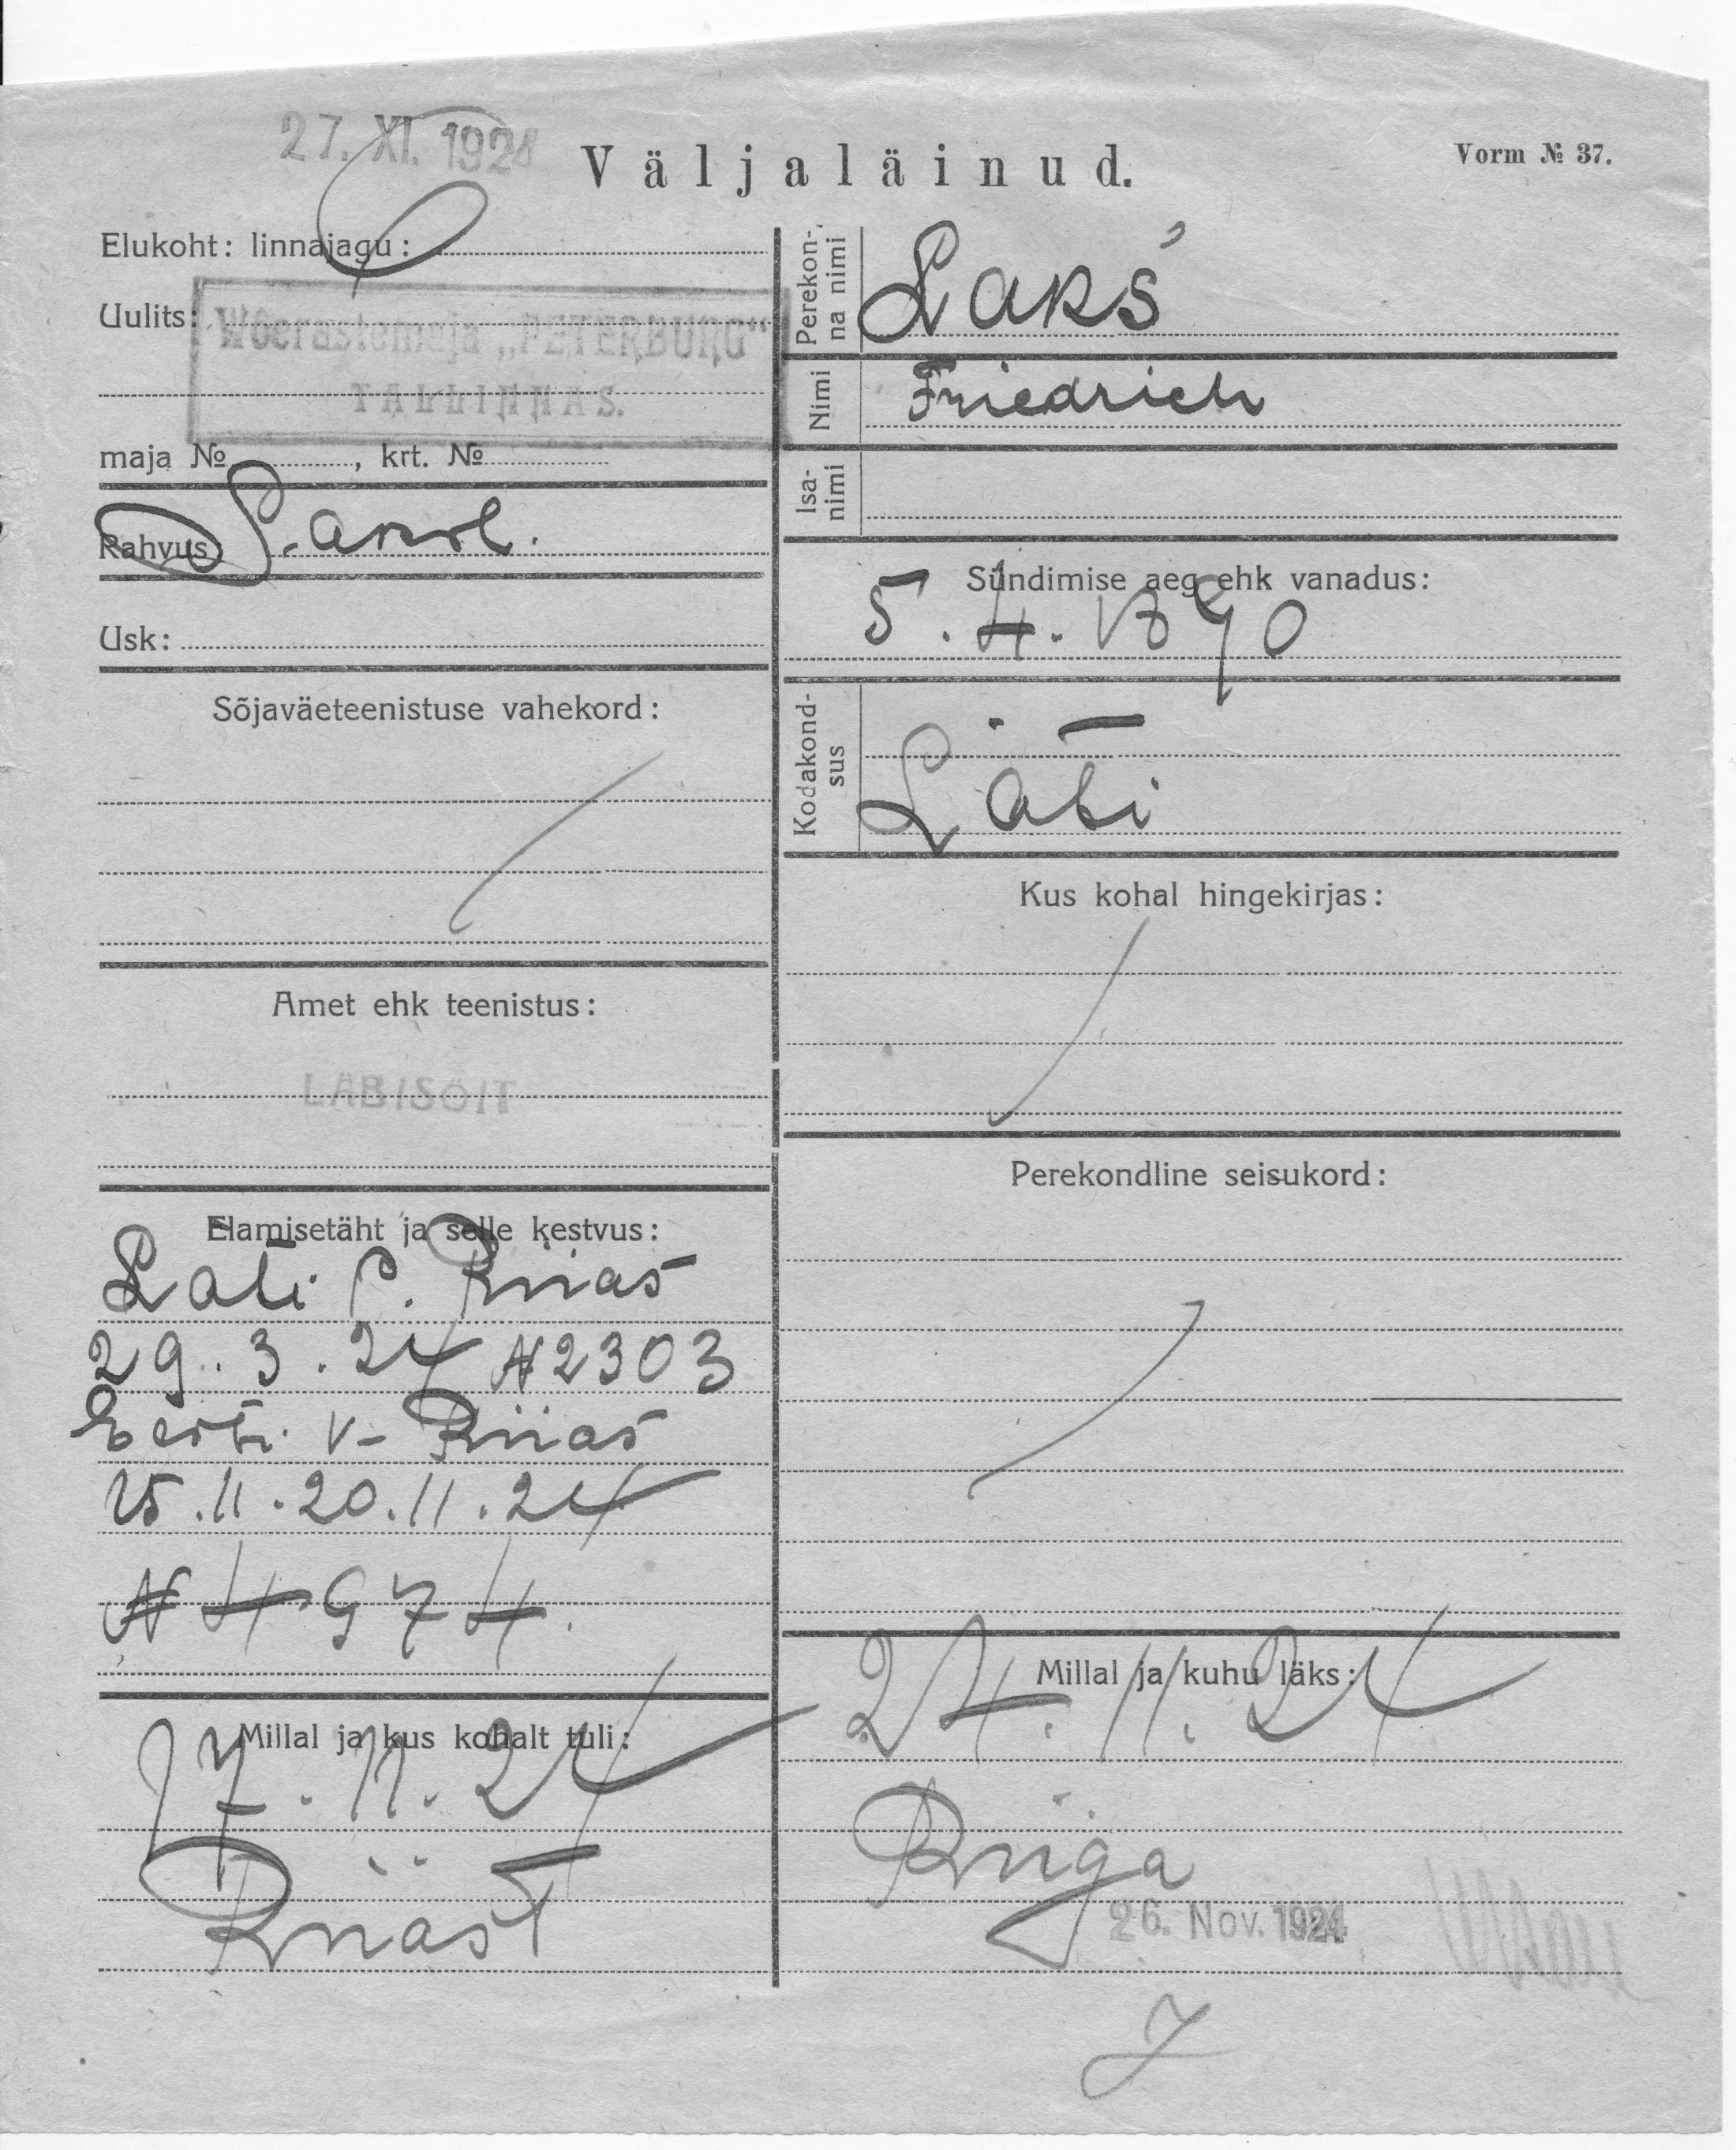 27. XI. 1924
Väljaläinud.
Vorm № 37.
Elukoht: linnajagu:
Uulits:
Wõerastemaja „PETERBURG“
TALLINNAS.
maja № , krt. №
Rahvus
Usk:
Sõjaväeteenistuse vahekord:
Amet ehk teenistus:
LÄBISÕIT
Elamisetäht ja selle kestvus:
Läti P. Riias
29.3.24 N 2303
Eesti v- Riias
15.11.20.11.24
N 4974.
Millal ja kus kohalt tuli:
17.11.24
Riiast
Perekon-
na nimi
Laks
Nimi
Friedrich
Isa-
nimi
Sündimise aeg ehk vanadus:
5.4.1890
Kodakond-
sus
Läti
Kus kohal hingekirjas:
Perekondline seisukord:
Millal ja kuhu läks:
24.11.24
Riiga
26. Nov. 1924